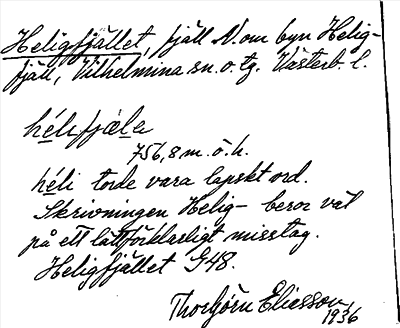 Heligfjället, fjäll N. om byn Helig-
fjäll, Vilhelmina sn. o. tg. Västerb. l.
hélifjæla
756,8 m. ö. h.
héli torde vara lapskt ord.
Skrivningen Helig- beror väl
på ett lättförklarligt misstag.
Heligfjället G48.
Thorbjörn Eliesson, 1936